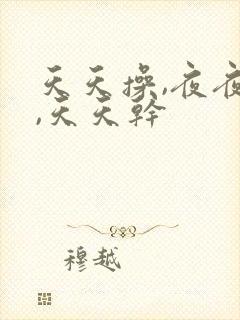 天天操,夜夜
,天天幹
穆越